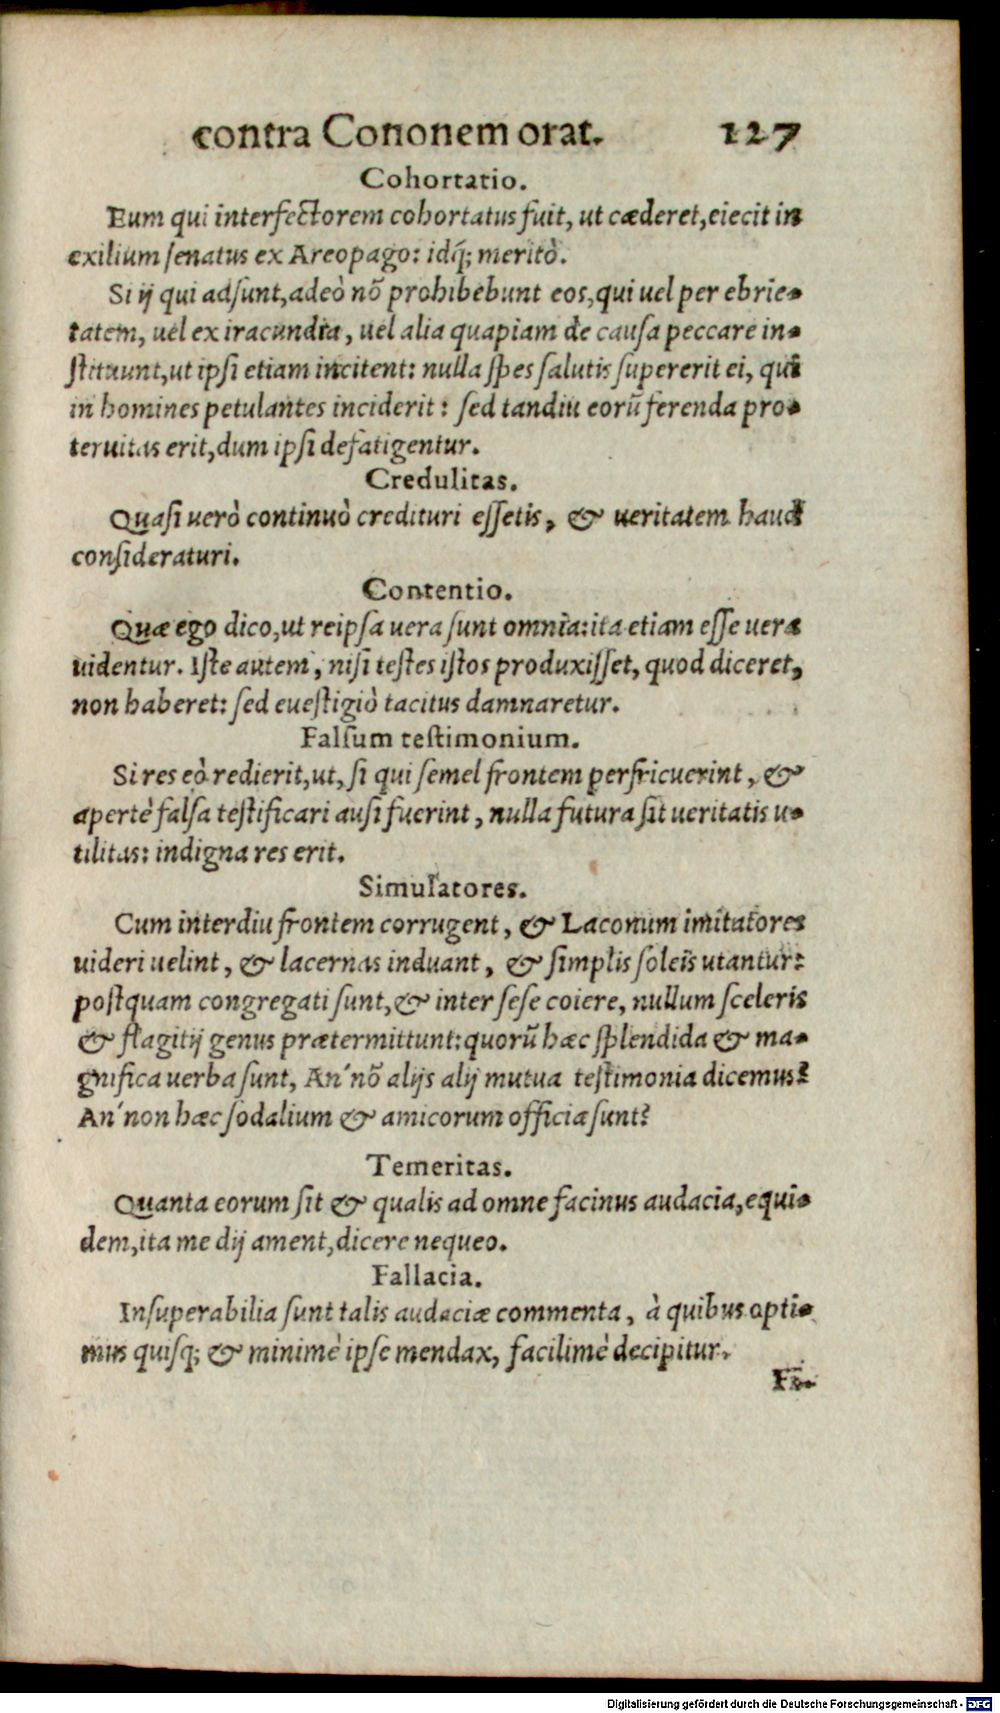 contra Cononem orat. 127
Cohortatio.
Eum qui interfectorem cohortatus fuit, ut cæderet, eiecit in
exilium senatus ex Areopago: idq́; meritò.
Si ij qui adsunt, adeò nõ prohibebunt eos, qui uel per ebrie-
tatem, uel ex iracundia, uel alia quapiam de causa peccare in-
stituunt, ut ipsi etiam incitent: nulla spes salutis supererit ei, qui
in homines petulantes inciderit: sed tandiu eorũ ferenda pro-
teruitas erit, dum ipsi defatigentur.
Credulitas.
Quasi uerò continuò credituri essetis, & ueritatem haud
consideraturi.
Contentio.
Quæ ego dico, ut reipsa uera sunt omnia: ita etiam esse uera
uidentur. Iste autem, nisi testes istos produxisset, quod diceret,
non haberet: sed euestigiò tacitus damnaretur.
Falsum testimonium.
Si res eò redierit, ut, si qui semel frontem perfricuerint, &
apertè falsa testificari ausi fuerint, nulla futura sit ueritatis u-
tilitas: indigna res erit.
Simulatores.
Cum interdiu frontem corrugent, & Laconum imitatores
uideri uelint, & lacernas induant, & simplis soleis utantur:
postquam congregati sunt, & inter sese coiere, nullum sceleris
& flagitij genus prætermittunt: quorũ hæc splendida & ma-
gnifica uerba sunt, An' nõ alijs alij mutua testimonia dicemus?
An' non hæc sodalium & amicorum officia sunt?
Temeritas.
Quanta eorum sit & qualis ad omne facinus audacia, equi-
dem, ita me dij ament, dicere nequeo.
Fallacia.
Insuperabilia sunt talis audaciæ commenta, à quibus opti-
mus quisq; & minimè ipse mendax, facilimè decipitur.
Digitalisierung gefördert durch die Deutsche Forschungsgemeinschaft - DFG